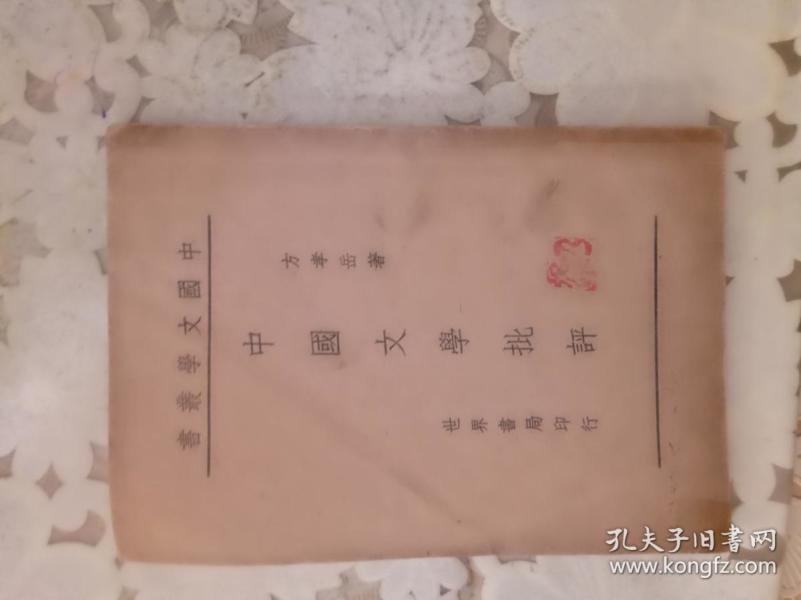 中國文學叢書
方孝岳著
中國文學批評
世界書局印行
孔夫子旧书网
www.kongfz.com